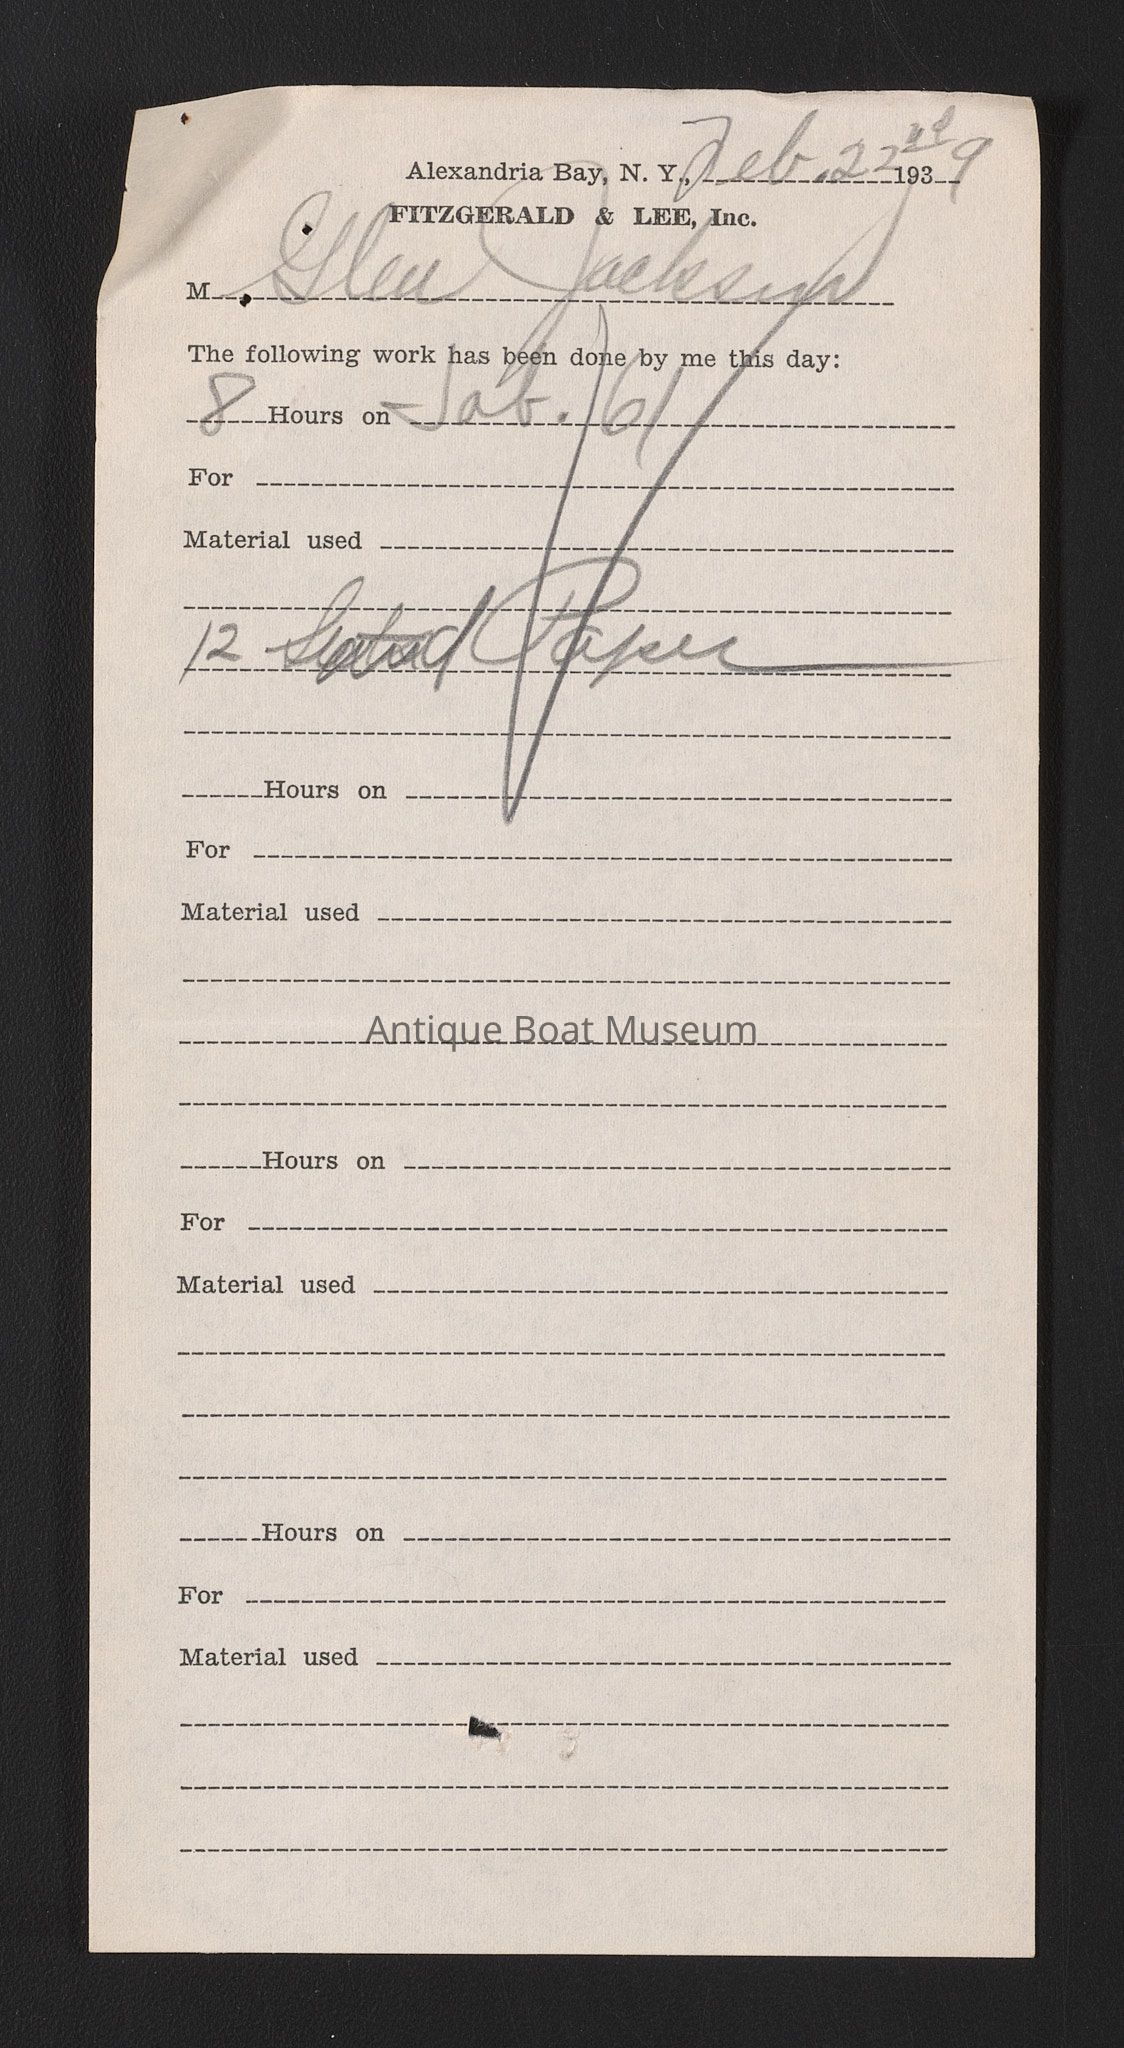 Alexandria Bay, N. Y., Feb. 22nd 1939
FITZGERALD & LEE, Inc.
M Glen Jackson
The following work has been done by me this day:
8 Hours on Job. 61
For
Material used
12 Paper
Hours on
For
Material used
Antique Boat Museum
Hours on
For
Material used
Hours on
For
Material used